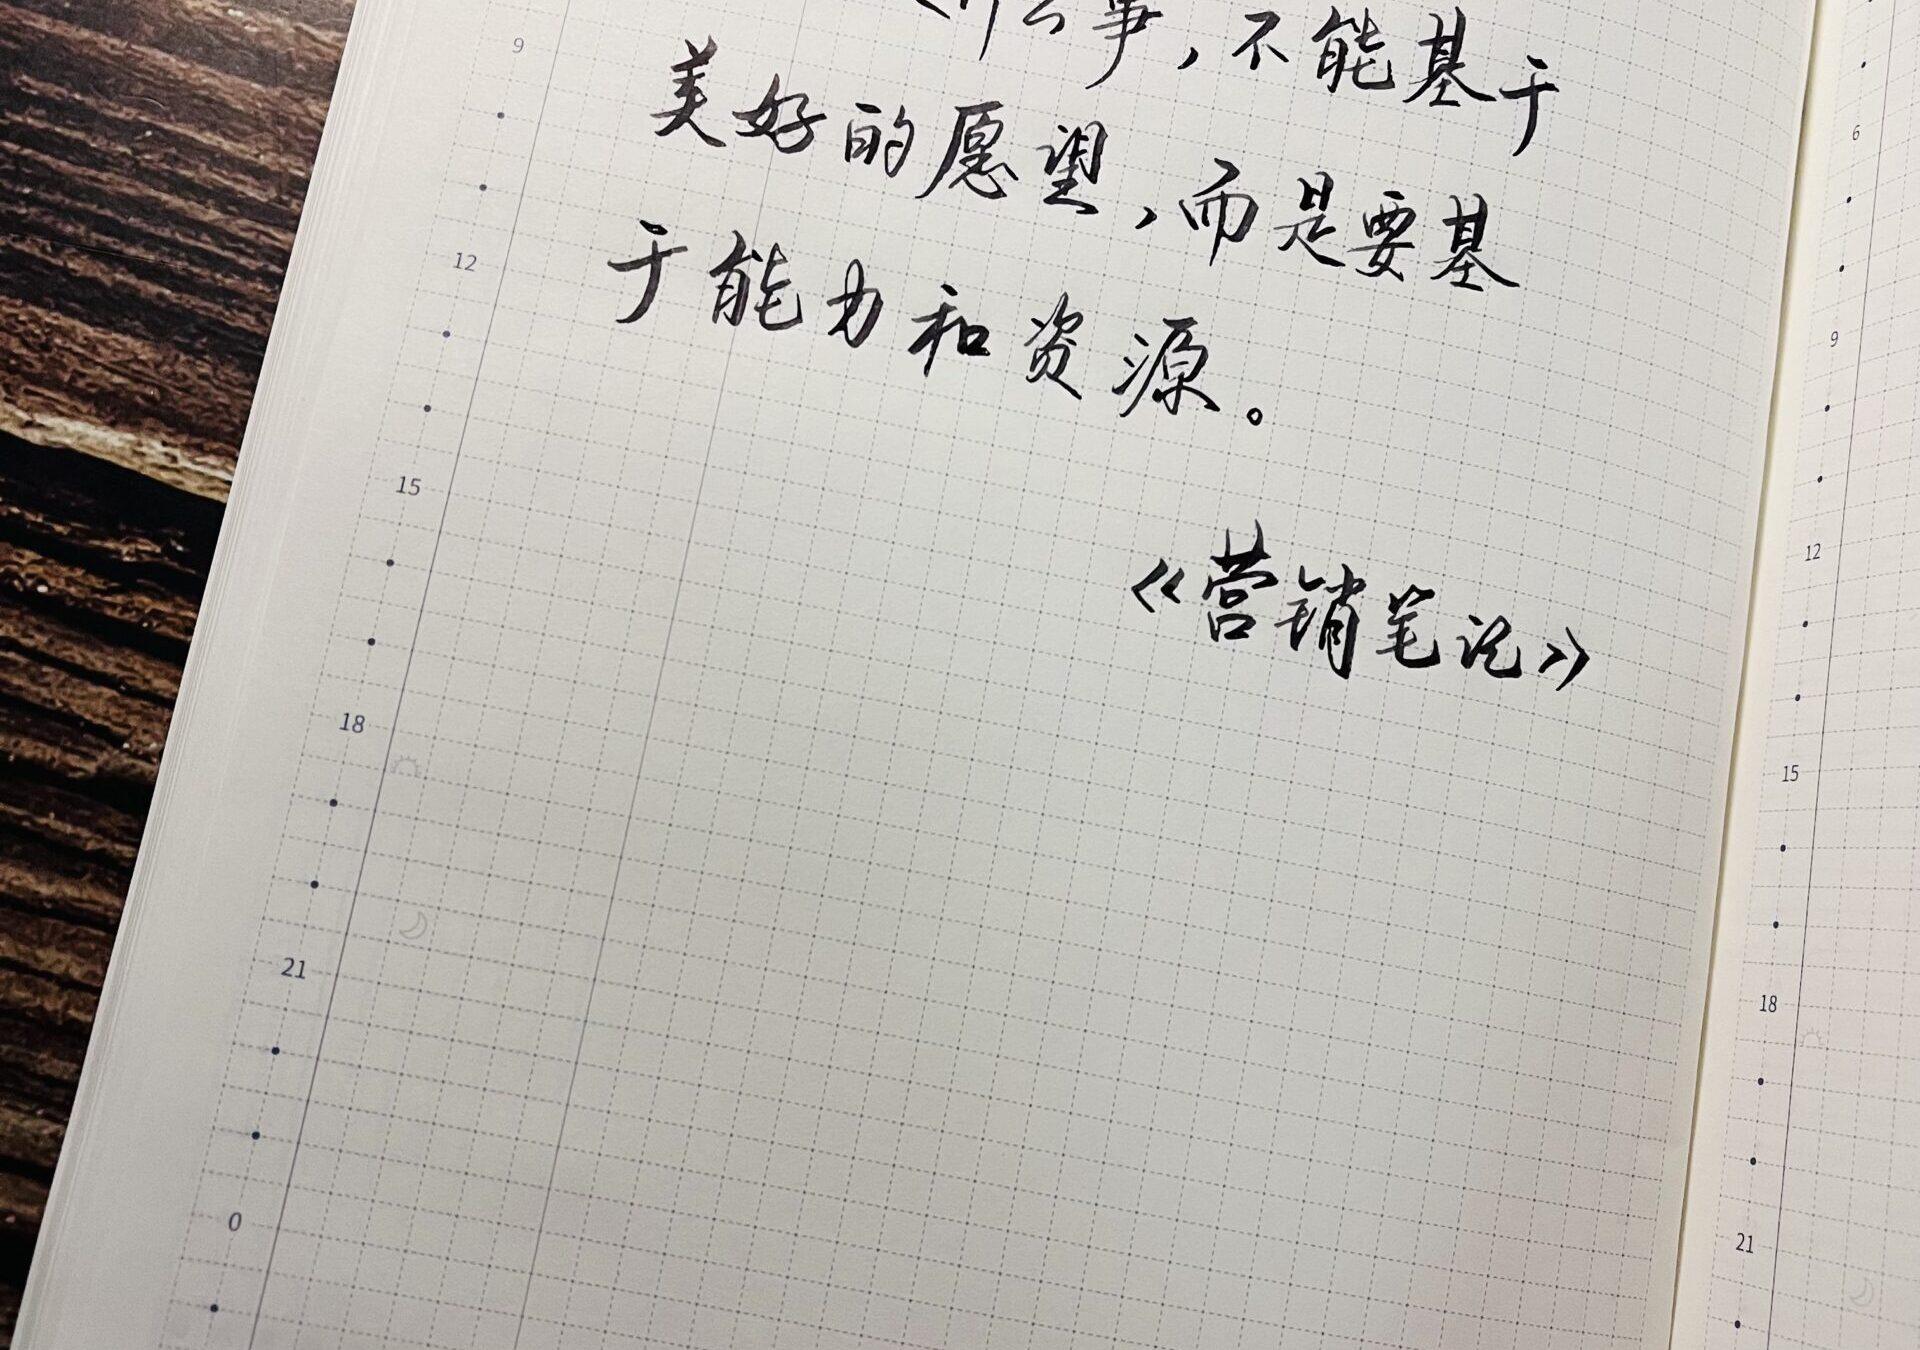 事，不能基于
美好的愿望，而是要基
于能力和资源。
《营销笔记》
9
12
15
18
21
0
6
9
12
15
18
21